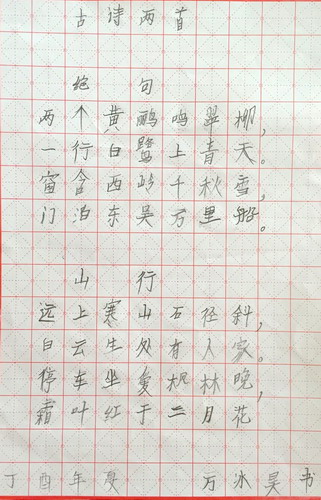 古诗两首
绝句
两个黄鹂鸣翠柳,
一行白鹭上青天。
窗含西岭千秋雪,
门泊东吴万里船。
山行
远上寒山石径斜,
白云生处有人家。
停车坐爱枫林晚,
霜叶红于二月花
丁酉年夏 万冰昊书